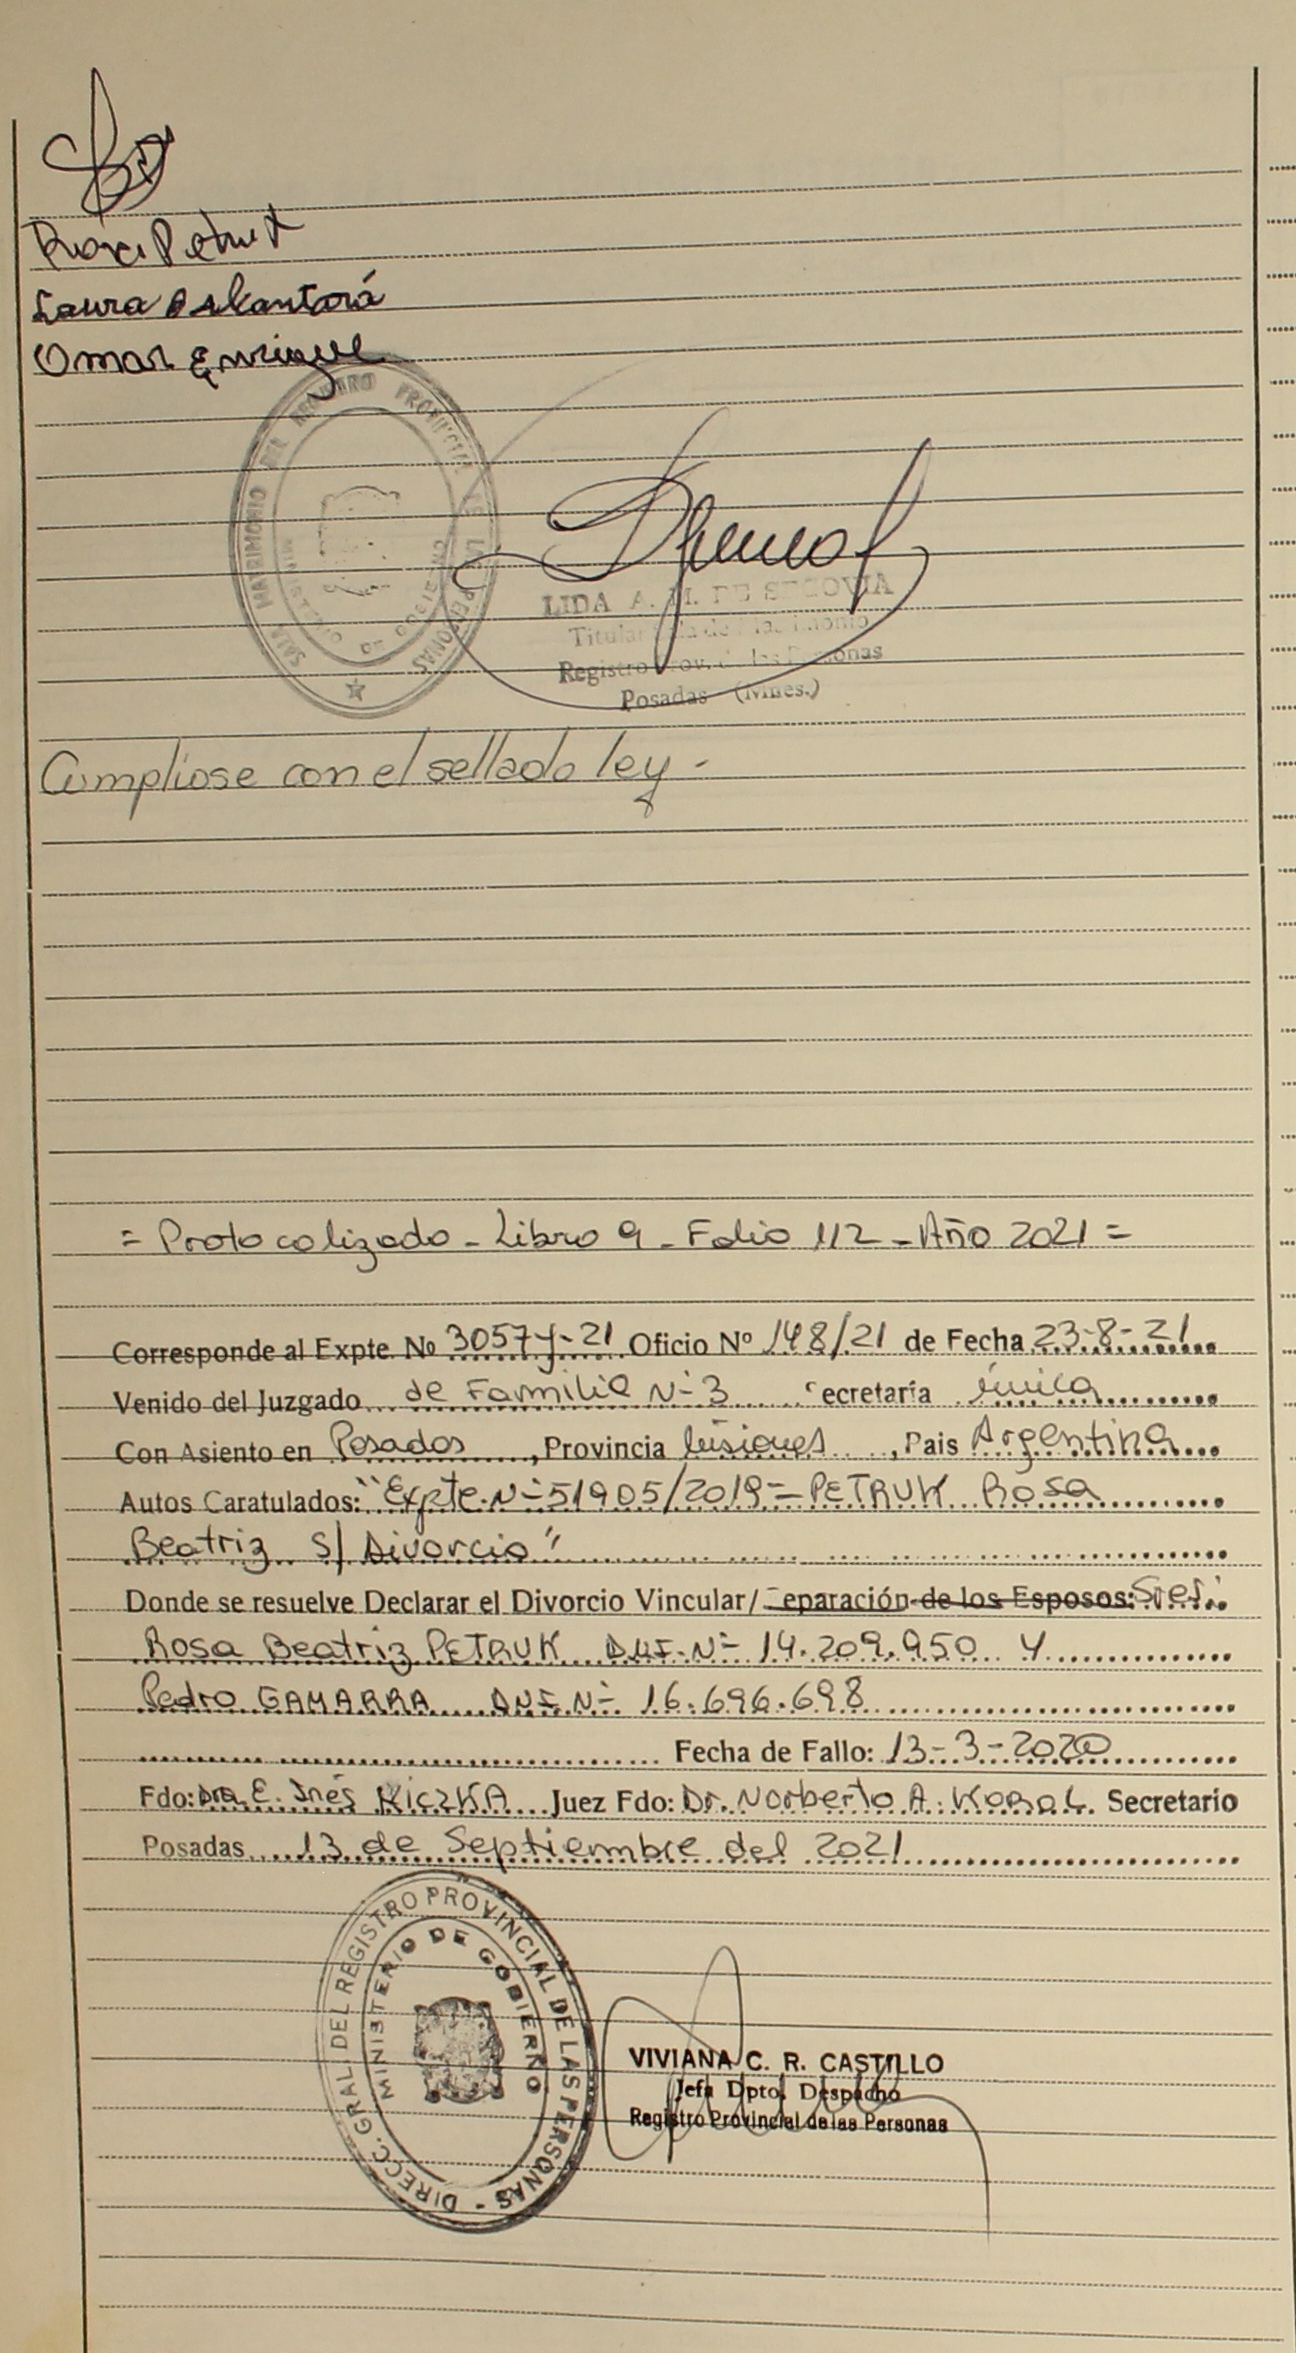 Rosa Petruk
Laura Alkantará
Omar Enrique
SALA MATRIMONIO DEL REGISTRO PROVINCIAL DE LAS PERSONAS
LIDA A. M. DE SEGOVIA
Titular Sala de Matrimonio
Registro Prov. de las Personas
Posadas (Mnes.)
Cumpliose con el sellado ley -
= Protocolizado - Libro 9 - Folio 112 - Año 2021 =
Corresponde al Expte No 3057 -21 Oficio Nº 148/21 de Fecha 23-8-21
Venido del Juzgado de Familia Nº 3 ecretaría única
Con Asiento en Posadas, Provincia Misiones, Pais Argentina
Autos Caratulados: "Expte. Nº 51905/2019 = PETRUK Rosa
Beatriz S/ Divorcio"
Donde se resuelve Declarar el Divorcio Vincular/ eparación de los Esposos: Sres.
Rosa Beatriz PETRUK DNI. Nº 14.209.950 y
Pedro GAMARRA DNI Nº 16.696.698
Fecha de Fallo: 13-3-2020
Fdo: Dra E. Inés KICZKA Juez Fdo: Dr. Norberto A. Secretario
Posadas 13 de Septiembre del 2021
DIRECC. GRAL. DEL REGISTRO PROVINCIAL DE LAS PERSONAS -
MINISTERIO DE GOBIERNO
VIVIANA C. R. CASTILLO
Jefa Dpto. Despacho
Registro Provincial de las Personas